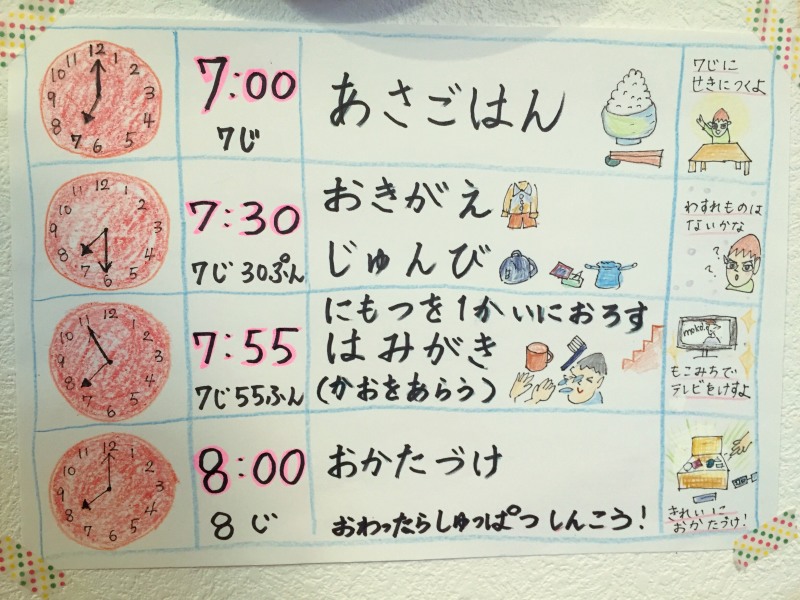 12 1 2 3 4 5 6 7 8 9 10 11
7:00
7じ
あさごはん
7じに
せきにつくよ
12 1 2 3 4 5 6 7 8 9 10 11
7:30
7じ30ぷん
おきがえ
じゅんび
わすれものは
ないかな
? ?
12 1 2 3 4 5 6 7 8 9 10 11
7:55
7じ55ふん
にもつを1かいにおろす
はみがき
(かおをあらう)
もこみちで
テレビをけすよ
12 1 2 3 4 5 6 7 8 9 10 11
8:00
8じ
おかたづけ
おわったらしゅっぱつしんこう!
きれいに
おかたづけ!